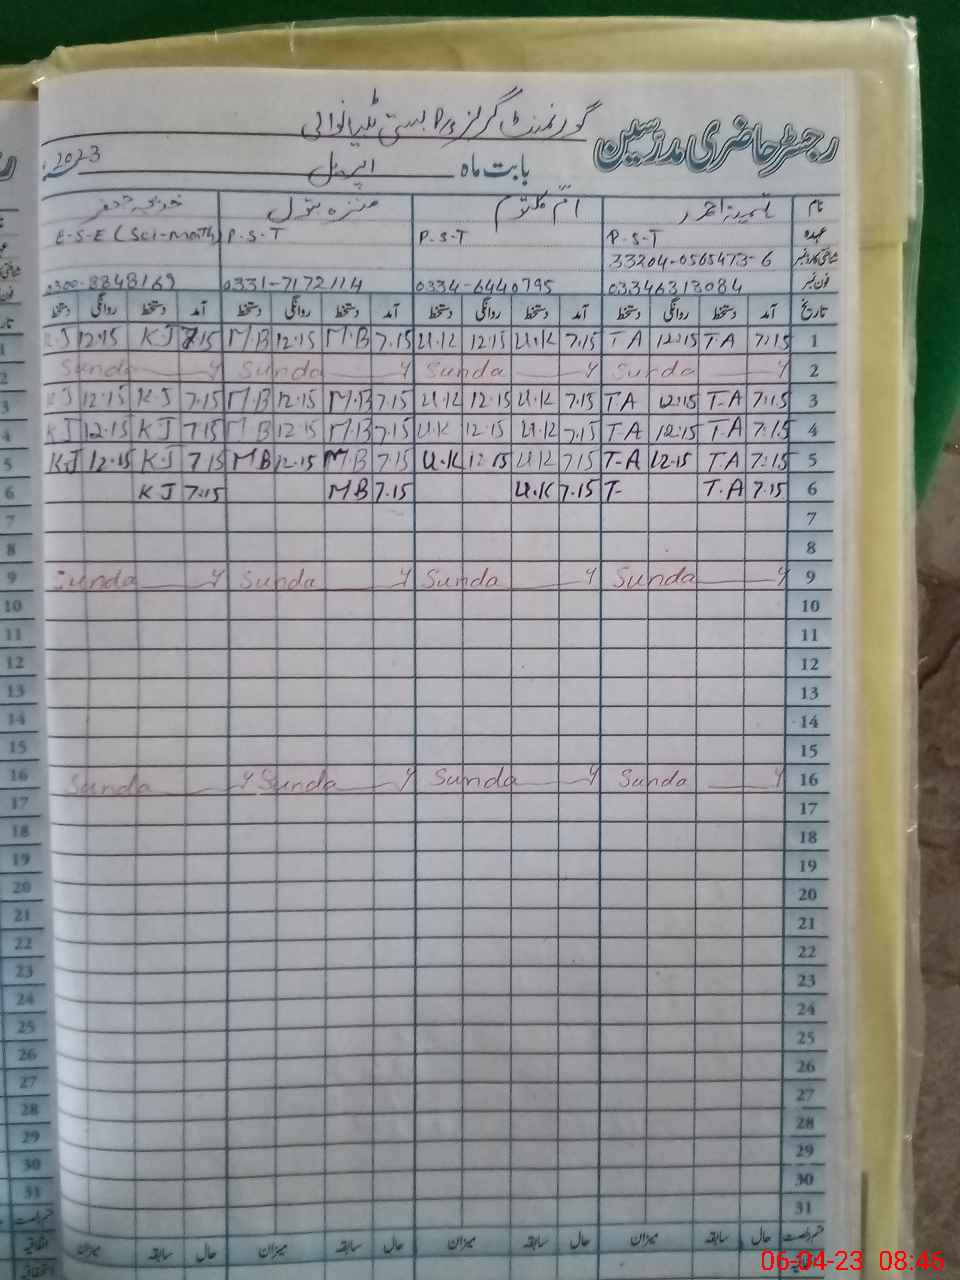 رجسٹر حاضری مدرسین گورنمنٹ گرلز بستی
بابت ماہ اپریل 2023
نام ثمینہ احمد ام کلثوم منزہ بتول خدیجہ جعفر
عہدہ P.S.T P.S.T P.S.T E-S-E (Sci-math)
شناختی کارڈ نمبر 33204-0565473-6
فون نمبر 03346313084 0334-6440795 0331-7172114 0300-8848169
تاریخ آمد دستخط روانگی دستخط آمد دستخط روانگی دستخط آمد دستخط روانگی دستخط آمد دستخط روانگی دستخط
1 7:15 T A 12:15 T A 7.15 U.K 12.15 U.K 7.15 M.B 12.15 M.B 7.15 K.J 12.15 K.J
2 Sunday Sunday Sunday Sunday
3 7:15 T.A 12:15 T A 7.15 U.K 12.15 U.K 7.15 M.B 12.15 M.B 7.15 K.J 12.15 K.J
4 7:15 T.A 12:15 T A 7.15 U.K 12.15 U.K 7.15 M.B 12.15 M.B 7.15 K J 12.15 K J
5 7:15 T A 12.15 T-A 7.15 U.K 12.15 U.K 7.15 M B 12.15 M B 7.15 K.J 12.15 K.J
6 7.15 T.A T- 7.15 U.K 7.15 M B 7:15 K J
7
8
9 Sunday Sunday Sunday Sunday
10
11
12
13
14
15
16 Sunday Sunday Sunday Sunday
17
18
19
20
21
22
23
24
25
26
27
28
29
30
31
حال سابقہ میزان حال سابقہ میزان حال سابقہ میزان حال سابقہ میزان
06-04-23 08:46